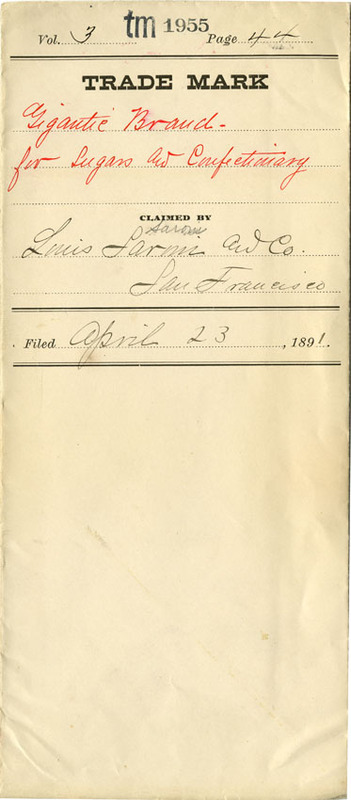 tm 1955
Vol. 3 Page 44
TRADE MARK
Gigantic Brand-
for Sugars and Confectionary
CLAIMED BY
Saroni
Louis Saroni and Co.
San Francisco
Filed April 23, 1891.